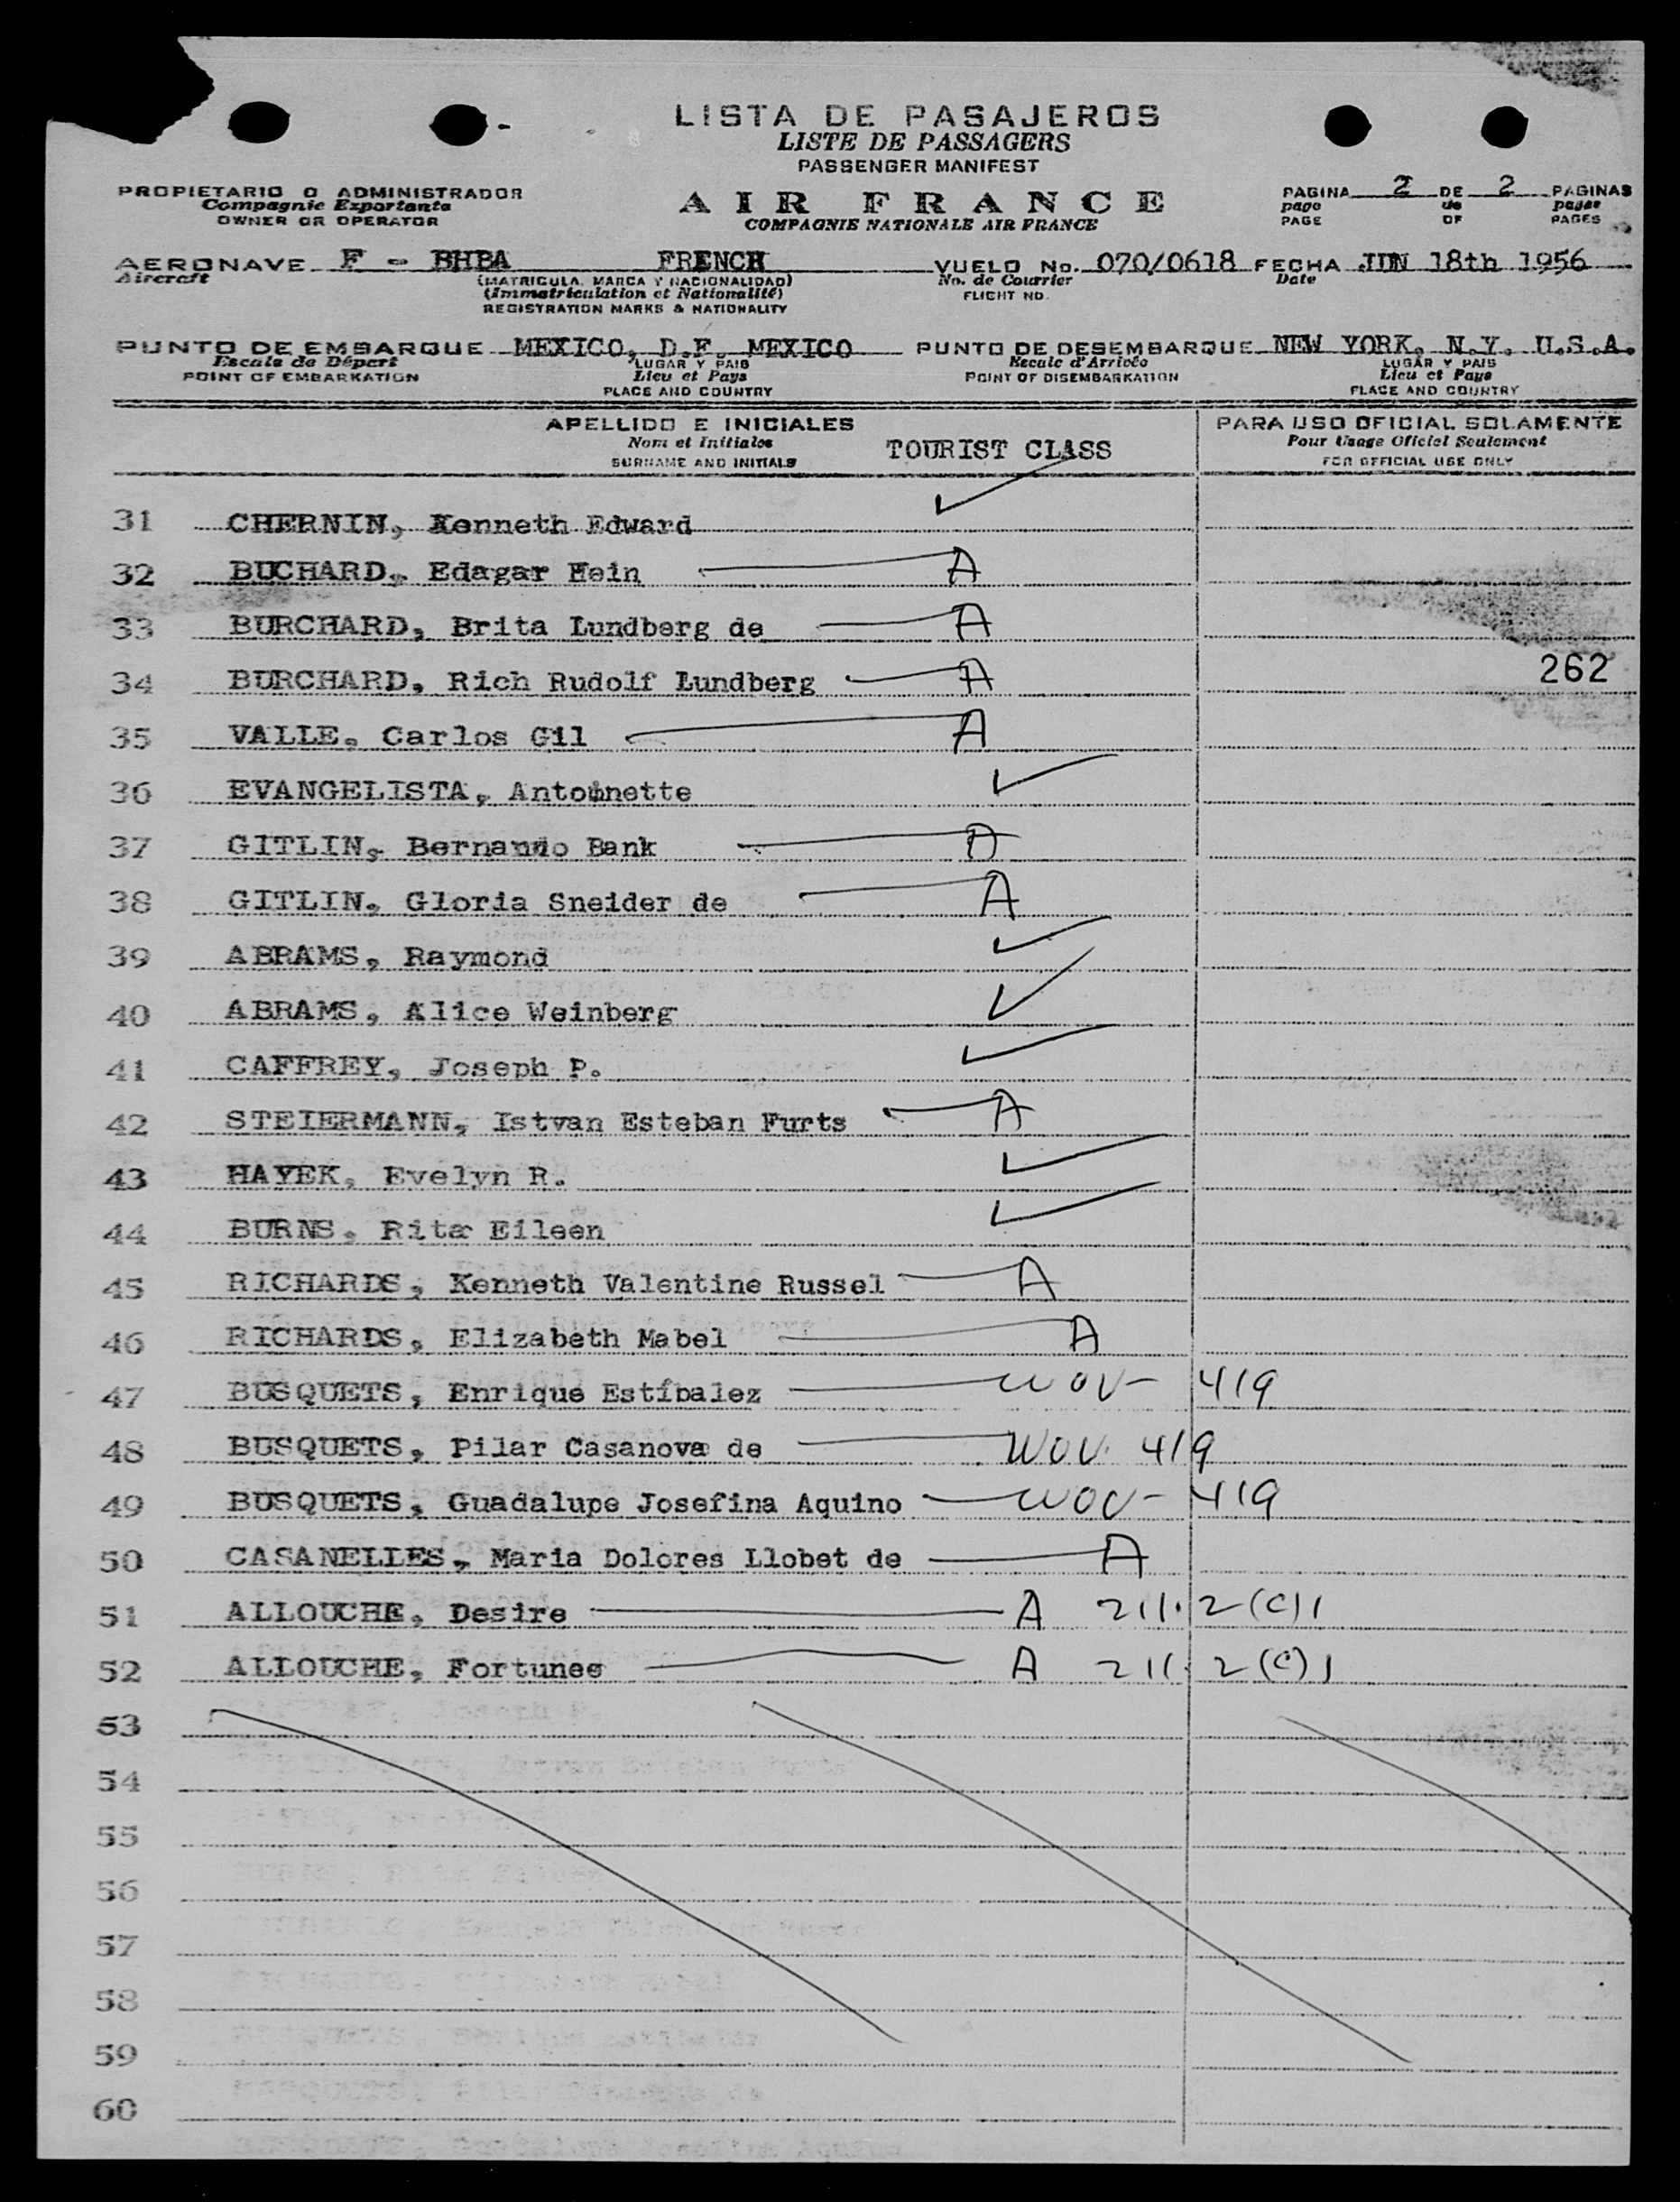 LISTA DE PASAJEROS
LISTE DE PASSAGERS
PASSENGER MANIFEST
PROPIETARIO O ADMINISTRADOR
Compagnie Exportante
OWNER OR OPERATOR
AIR FRANCE
COMPAGNIE NATIONALE AIR FRANCE
PAGINA 2 DE 2 PAGINAS
page de pages
PAGE OF PAGES
AERONAVE F - BHBA FRENCH VUELO No. 070/0618 FECHA JUN 18th 1956
Aircraft (MATRICULA, MARCA Y NACIONALIDAD) No. de Courrier Date
(Immatriculation et Nationalité) FLIGHT NO.
REGISTRATION MARKS & NATIONALITY
PUNTO DE EMBARQUE MEXICO, D.F. MEXICO PUNTO DE DESEMBARQUE NEW YORK, N.Y. U.S.A.
Escale de Départ LUGAR Y PAIS Escale d'Arrivée LUGAR Y PAIS
POINT OF EMBARKATION Lieu et Pays POINT OF DISEMBARKATION Lieu et Pays
PLACE AND COUNTRY PLACE AND COUNTRY
APELLIDO E INICIALES PARA USO OFICIAL SOLAMENTE
Nom et Initiales TOURIST CLASS Pour Usage Oficiel Seulement
SURNAME AND INITIALS FOR OFFICIAL USE ONLY
31 CHERNIN, Kenneth Edward ✓
32 BUCHARD, Edagar Hein A
33 BURCHARD, Brita Lundberg de A
34 BURCHARD, Rich Rudolf Lundberg A 262
35 VALLE, Carlos Gil A
36 EVANGELISTA, Antoinette ✓
37 GITLIN, Bernando Bank A
38 GITLIN, Gloria Sneider de A
39 ABRAMS, Raymond ✓
40 ABRAMS, Alice Weinberg ✓
41 CAFFREY, Joseph P. ✓
42 STEIERMANN, Istvan Esteban Furts A
43 HAYEK, Evelyn R. ✓
44 BURNS, Rita Eileen ✓
45 RICHARDS, Kenneth Valentine Russel A
46 RICHARDS, Elizabeth Mabel A
47 BUSQUETS, Enrique Estíbalez WOV- 419
48 BUSQUETS, Pilar Casanova de WOV. 419
49 BUSQUETS, Guadalupe Josefina Aquino WOV- 419
50 CASANELLES, Maria Dolores Llobet de A
51 ALLOUCHE, Desire A 211.2(C)1
52 ALLOUCHE, Fortunee A 211.2(C)1
53
54
55
56
57
58
59
60